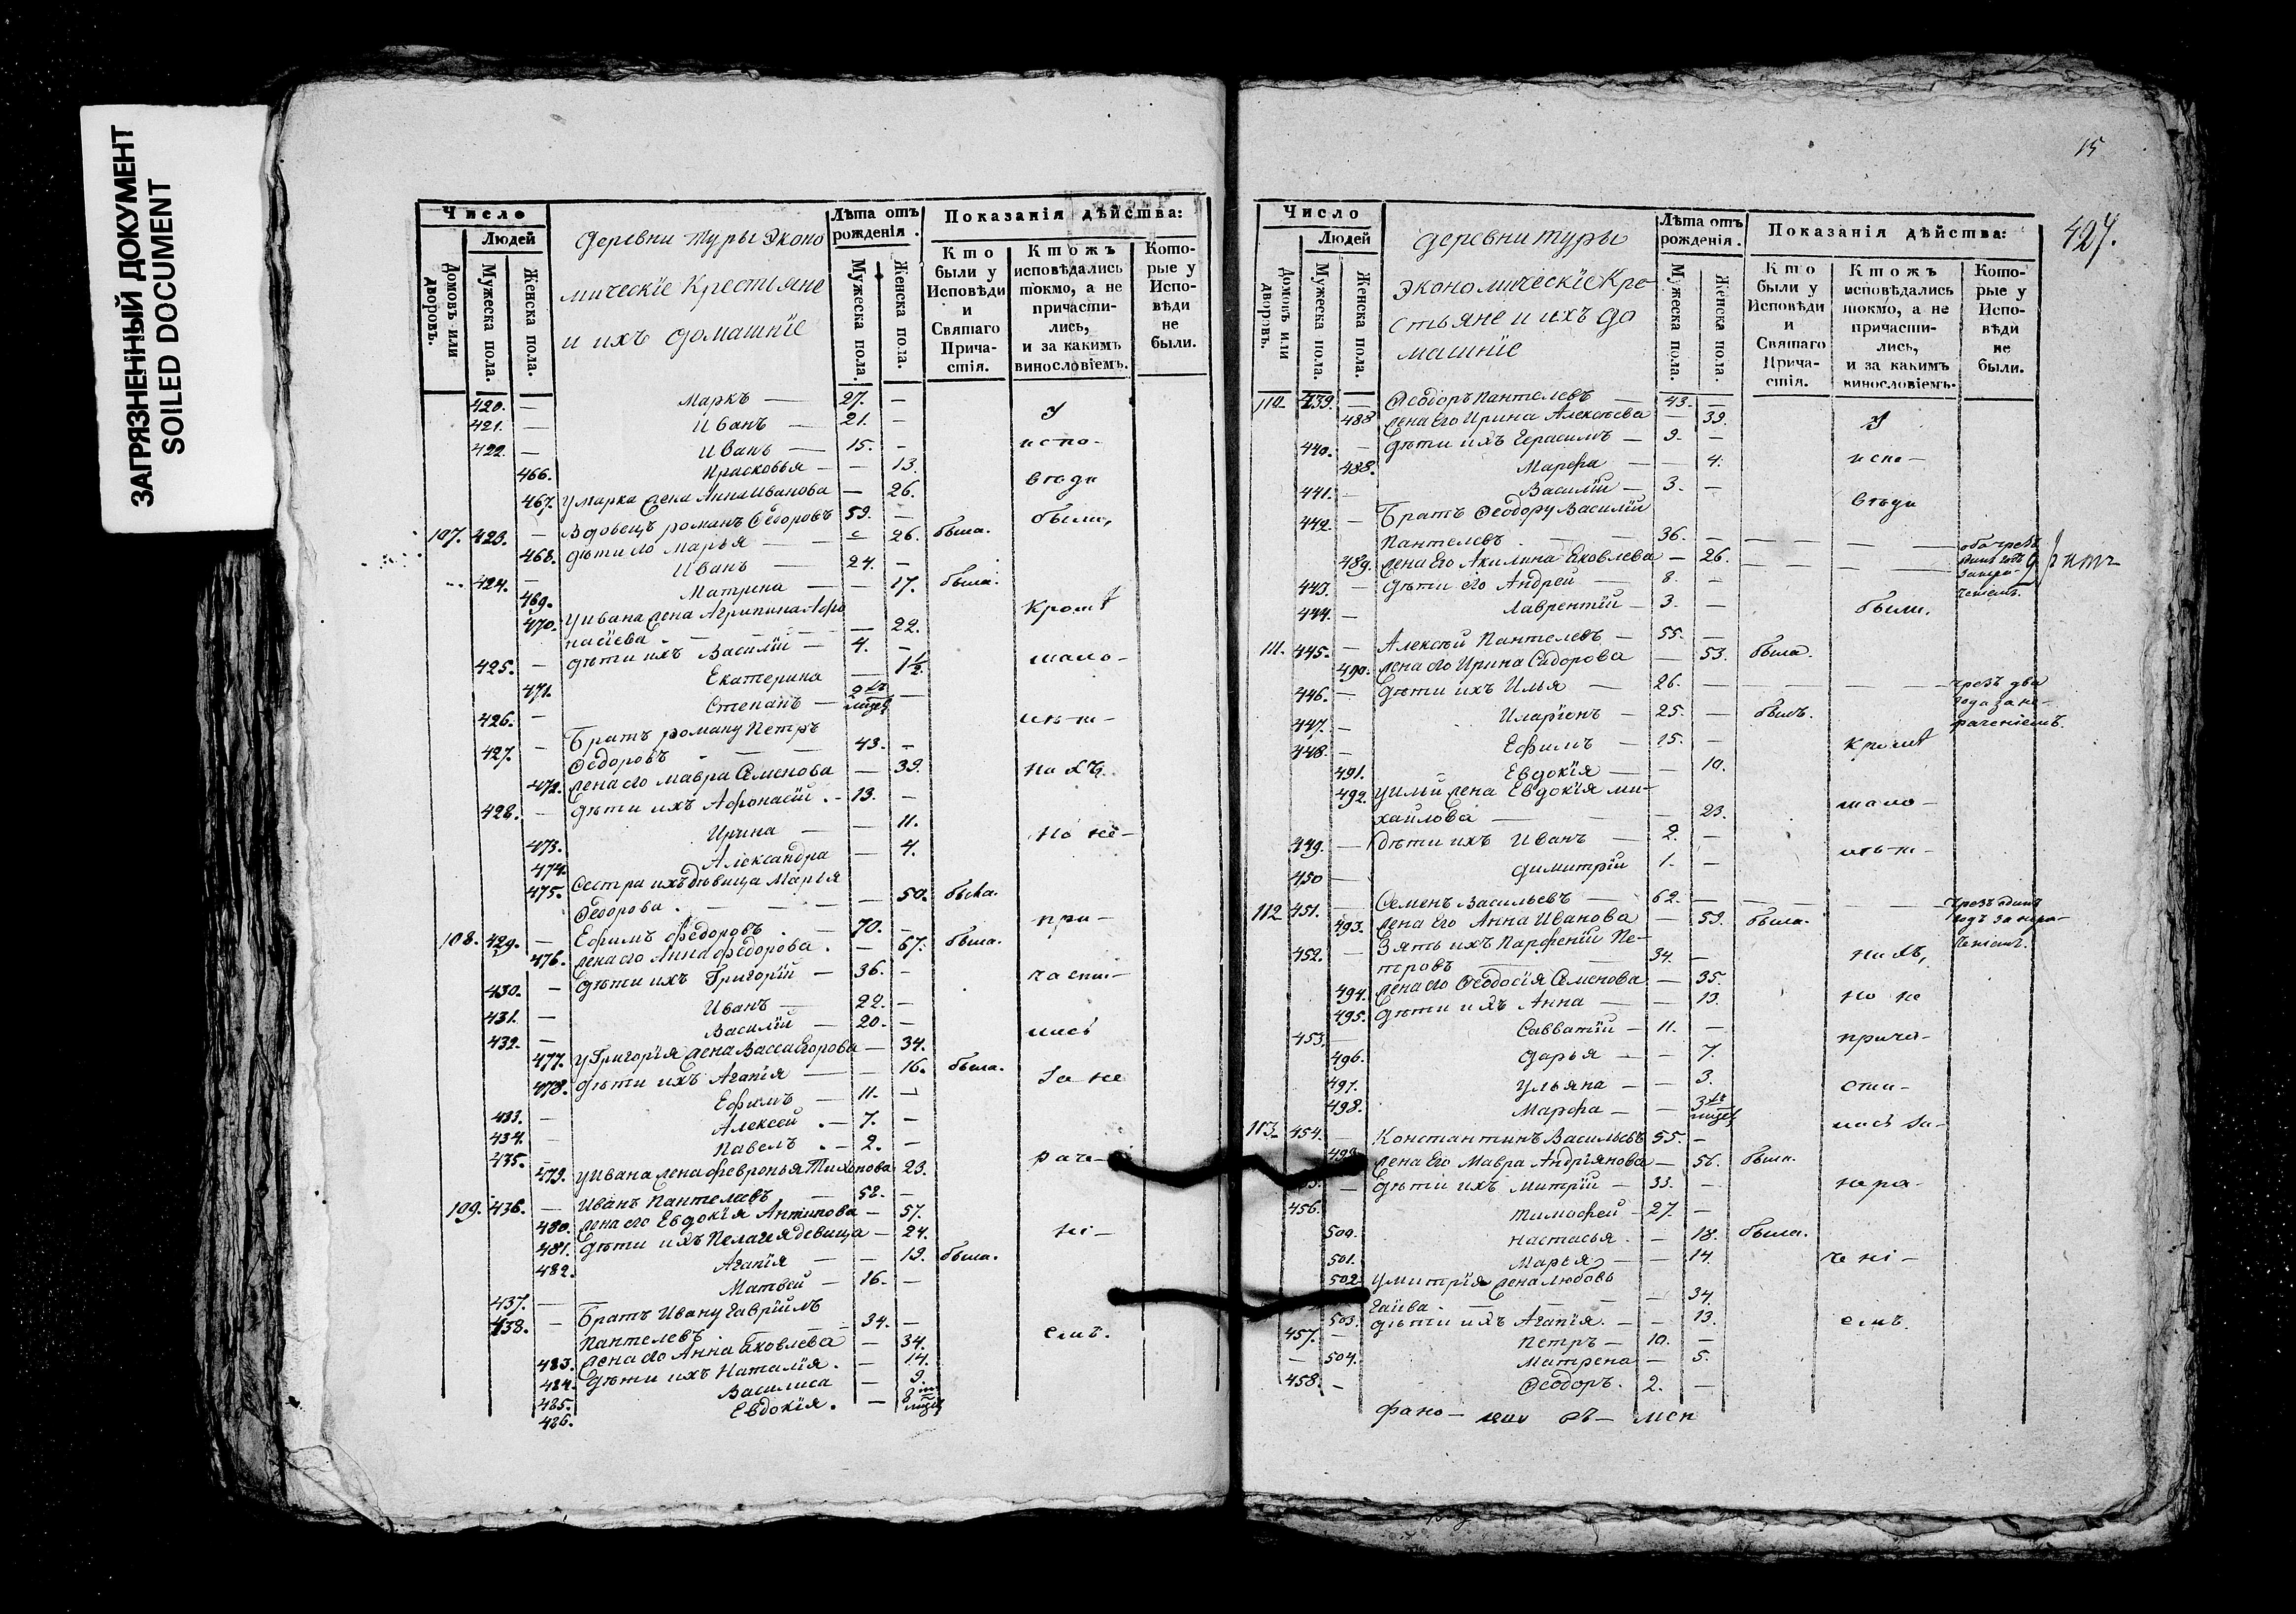 ЗАГРЯЗНЕННЫЙ ДОКУМЕНТ
SOILED DOCUMENT
Число
Людей
Домовъ или дворовъ.
Мужеска пола.
Женска пола.
деревни туры Эконо
мическіе Крестьяне
и ихъ домашніе
Лѣта отъ рожденія.
Мужеска пола.
Женска пола.
Показанія дѣйства:
Кто были у Исповѣди и Святаго Причастія.
Ктожъ исповѣдались токмо, а не причастились, и за какимъ винословіемъ.
Которые у Исповѣди не были.
420. — Маркъ — 27. —
421. — Иванъ — 21. —
422. — Иванъ — 15. — испо-
466. Прасковья — — 13.
467. У марка жена Анна Иванова — 26. вѣди
107. 423. — Вдовецъ роман Ѳедоровъ 59. — были,
468. дѣти его Марья — — 26. была.
424. — Иванъ — 24. —
469. Матрена — — 17. была.
470. У ивана жена Агрипина Афо
насіева — 22. Кромѣ
425. — дѣти ихъ Василій — 4. —
471. Екатерина — 1½ мало-
426. — Степанъ — 2хъ мцев —
427. — Братъ роману Петръ лѣт-
Ѳедоровъ — 43. —
472. жена его мавра Семенова — 39. нихъ
428. — дѣти ихъ Афонасій — 13. —
473. Ирина — — 11.
474. Александра — 4. но не-
475. Сестра ихъ девица Марья
Ѳедорова — — 50. была.
108. 429. — Ефимъ Федоровъ — 70. — при-
476. жена его Анна федорова — 67. была.
430. — дѣти ихъ Григорій — 36. — части-
431. — Иванъ — 22. —
432. — Василій — 20. — лись
477. У Григорія жена Васса Егорова — 34.
478. дѣти ихъ Агапія — — 16. была.
433. — Ефимъ — 11. — за не
434. — Алексей — 7. —
435. — Павелъ — 2. —
479. У Ивана жена февронья Тихонова 23. раче-
109. 436. — Иванъ Пантелевъ — 58. —
480. жена его Евдокія Антипова — 57.
481. дѣти ихъ Пелагея девица — 24. ні-
482. Агапія — — 19. была.
437. — Матвей — 16. —
438. — Братъ Ивану Гавріилъ
Пантелевъ — 34. — емъ.
483. жена его Анна Яковлева — 34.
484. дѣти ихъ Наталія. — 14.
485. Василиса — 9.
486. Евдокія. — 8 мцев
15
427.
Число
Людей
Домовъ или дворовъ.
Мужеска пола.
Женска пола.
деревни туры
экономическіе Кре-
стьяне и ихъ до
машніе
Лѣта отъ рожденія.
Мужеска пола.
Женска пола.
Показанія дѣйства:
Кто были у Исповѣди и Святаго Причастія.
Ктожъ исповѣдались токмо, а не причастились, и за какимъ винословіемъ.
Которые у Исповѣди не были.
110. 439. — Ѳеодоръ Пантелевъ — 43. —
488 жена Его Ирина Алексѣева — 39.
440. — дѣти ихъ Герасимъ — 9. —
488. Марфа — — 4. испо-
441. — Василій — 3. —
442. — Братъ Ѳеодору Василій вѣди
Пантелевъ — 36. —
489. жена Его Акилина Яковлева — 26.
443. — дѣти его Андрей — 8. —
444. — Лаврентій — 3. — были.
111. 445. — Алексѣй Пантелевъ — 55. —
490. жена его Ирина Сидорова — 53. была.
446. — дѣти ихъ Илья — 26. — чрезъ два
года за не-
447. — Иларіонъ — 25. — былъ. раченіемъ.
448. — Ефимъ — 15. — Кромѣ
491. Евдокія — — 10.
492. У ильи жена Евдокія ми-
хаилова — — 23. мало-
449. — дѣти ихъ Иванъ — 2. —
450 — димитрій 1. — лѣт-
112 451. — Семенъ Васильевъ — 62. — чрезъ одинъ
493. жена Его Анна Иванова — 59. была. годъ за нера-
452. — Зять ихъ Парфеній Пе- ченіемъ.
тровъ — 34. — нихъ,
494. жена его Ѳеодосія Семенова — 35.
495. дѣти ихъ Анна — — 13. но не
453. — Савватій — 11. —
496. дарья — — 7. прича-
497. Ульяна — — 3. сти-
498. Марфа — — 3хъ мцев
113. 454. — Константинъ Васильевъ 55. — лись за-
499. жена Его Мавра Андріянова — 56. была.
— дѣти ихъ Митрій — 33. — нера-
456. Тимофей — 27. —
500. Настасья. — 18. была.
501. Марья — — 14. чені-
502. У митрія жена любовь
— 34.
503. дѣти ихъ Агапія. — — 13. емъ.
457. — Петръ — 10. —
— 504. Матрена — 5.
458. — Ѳеодоръ. 2. —